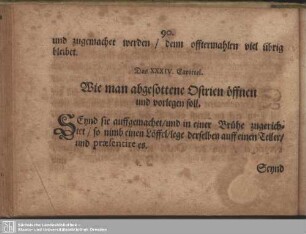 90.
und zugemachet werden / denn offtermahlen viel übrig
bleibet.
Das XXXIV. Capitel.
Wie man abgesottene Ostrien öffnen
und vorlegen soll.
SEynd sie auffgemachet / und in einer Brühe zugerich-
tet / so nimb einen Löffel / lege derselben auff einen Teller /
und præsentire es.
Seynd